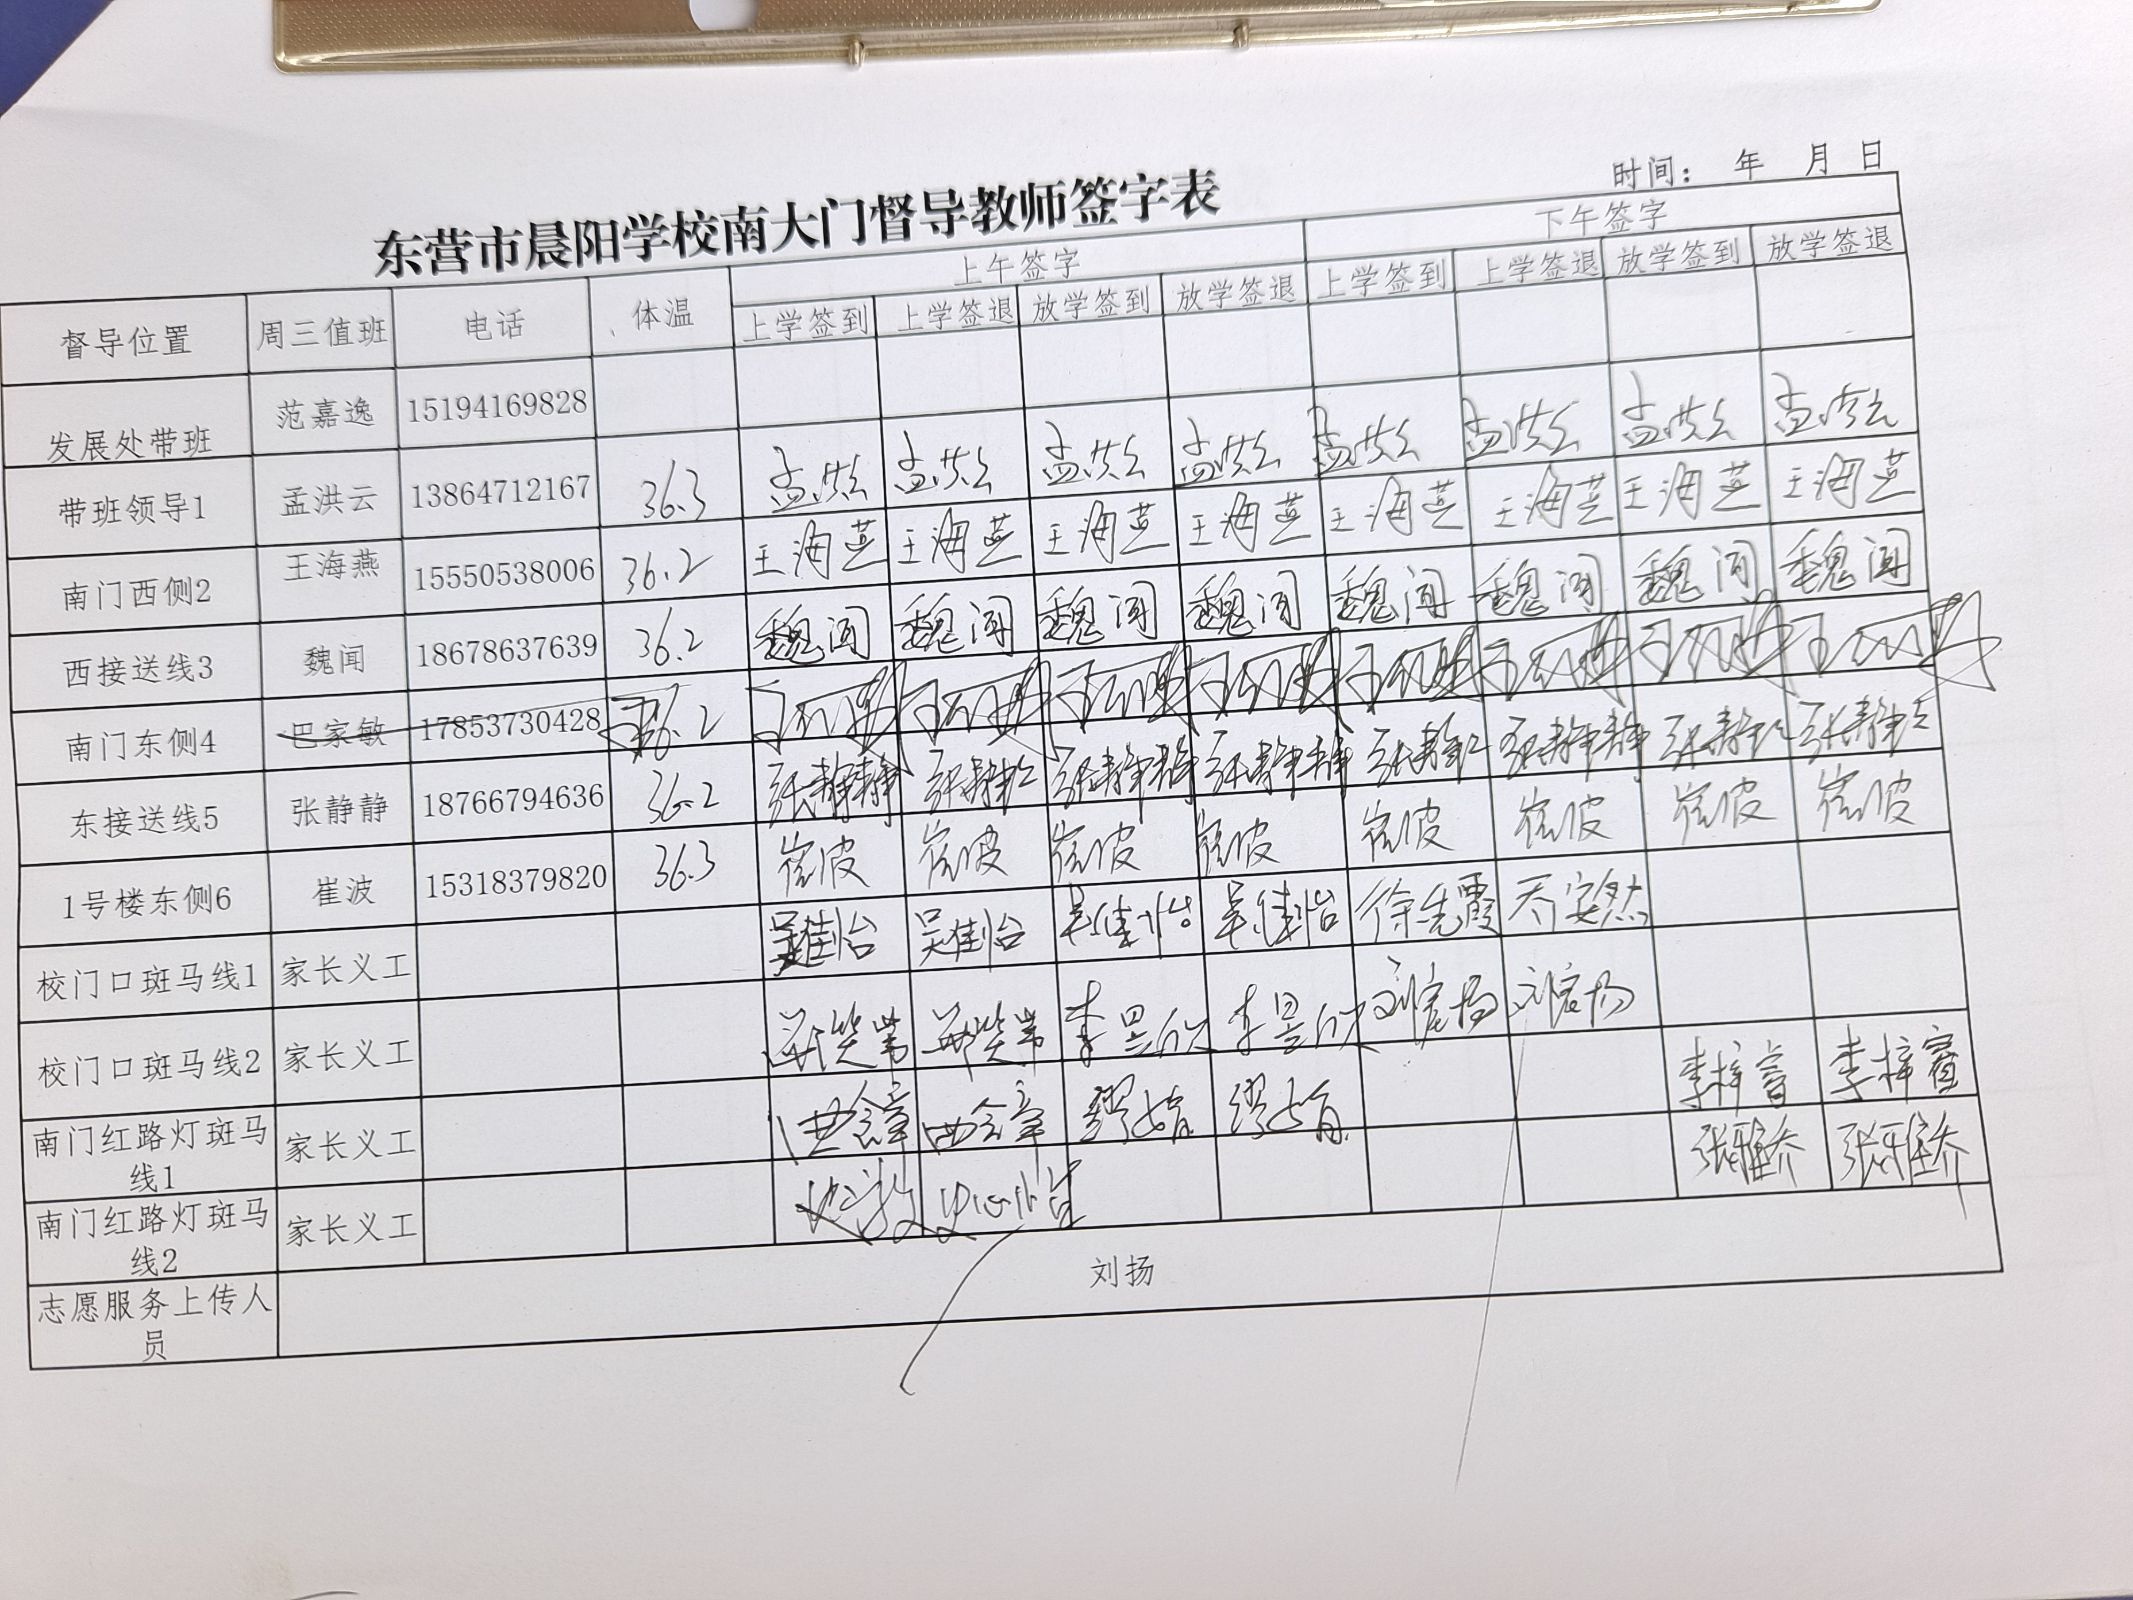 时间： 年 月 日
东营市晨阳学校南大门督导教师签字表
督导位置 周三值班 电话 体温 上午签字 下午签字
上学签到 上学签退 放学签到 放学签退 上学签到 上学签退 放学签到 放学签退
发展处带班 范嘉逸 15194169828
带班领导1 孟洪云 13864712167 36.3 孟洪云 孟洪云 孟洪云 孟洪云 孟洪云 孟洪云 孟洪云 孟洪云
南门西侧2 王海燕 15550538006 36.2 王海燕 王海燕 王海燕 王海燕 王海燕 王海燕 王海燕 王海燕
西接送线3 魏闻 18678637639 36.2 魏闻 魏闻 魏闻 魏闻 魏闻 魏闻 魏闻 魏闻
南门东侧4 巴家敏 17853730428 36.2
东接送线5 张静静 18766794636 36.2 张静静 张静静 张静静 张静静 张静静 张静静 张静静 张静静
1号楼东侧6 崔波 15318379820 36.3 崔波 崔波 崔波 崔波 崔波 崔波 崔波 崔波
校门口斑马线1 家长义工 吴佳怡 吴佳怡 吴佳怡 吴佳怡 徐先霞 乔安然
校门口斑马线2 家长义工 李昱欣 李昱欣 刘宸扬 刘宸扬
南门红路灯斑马
线1 家长义工 李梓睿 李梓睿
南门红路灯斑马
线2 家长义工 张雅乔 张雅乔
志愿服务上传人
员 刘扬